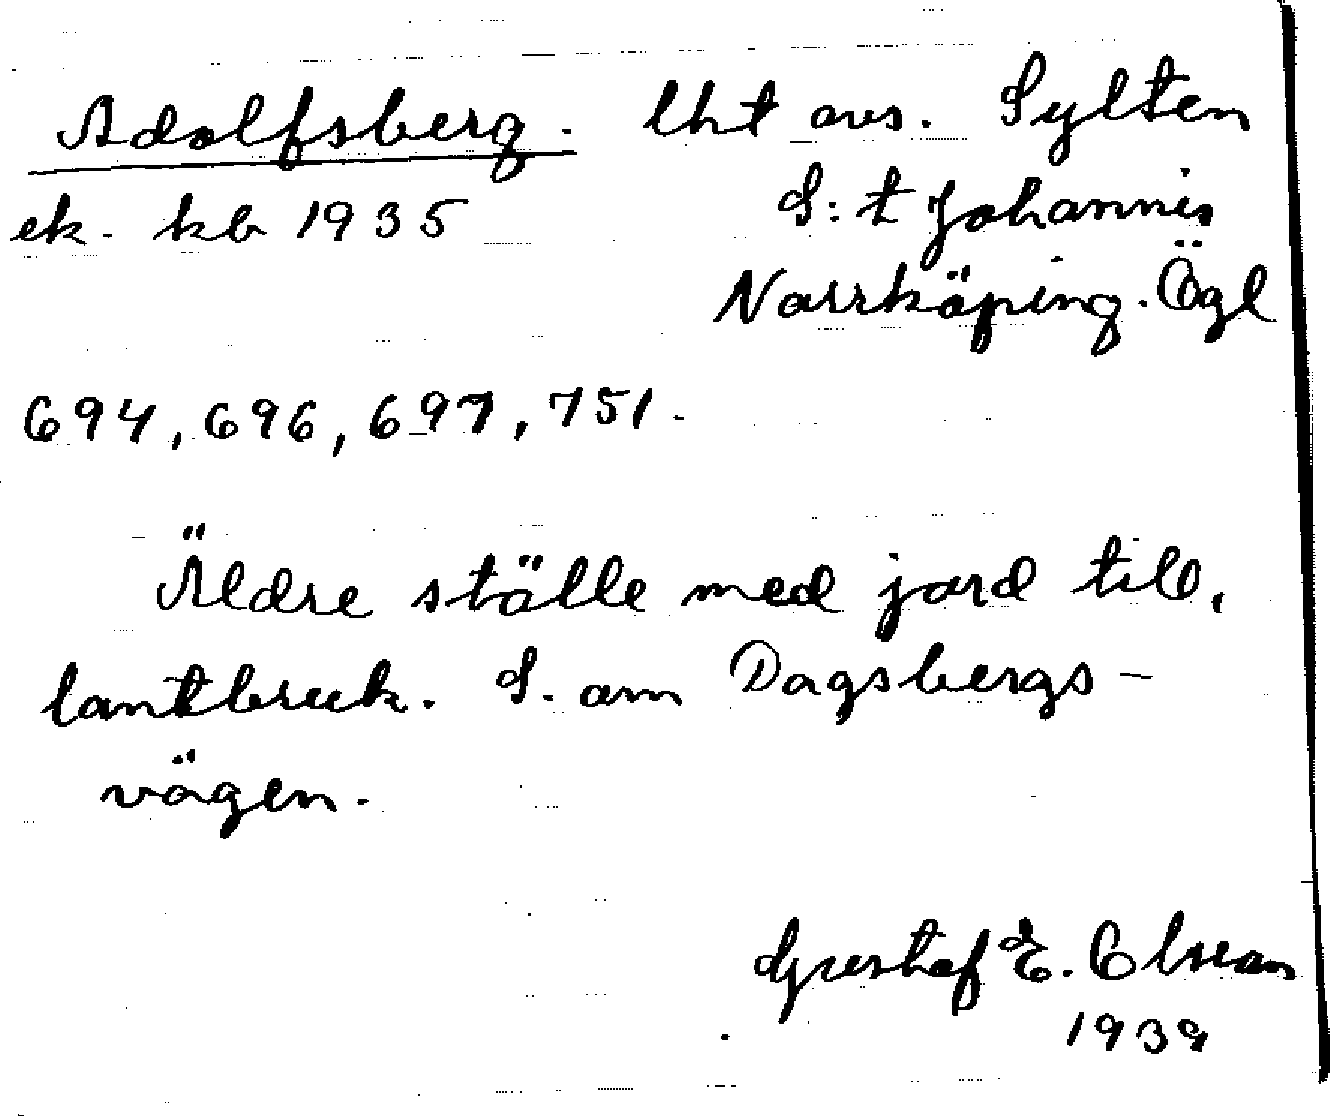 Adolfsberg. lht avs. Sylten
ek. kb 1935 S:t Johannis
Norrköping. Ögl
694, 696, 697, 751.
Äldre ställe med jord till,
lantbruk. S. om Dagsbergs-
vägen.
Gustaf E. Olson
1939